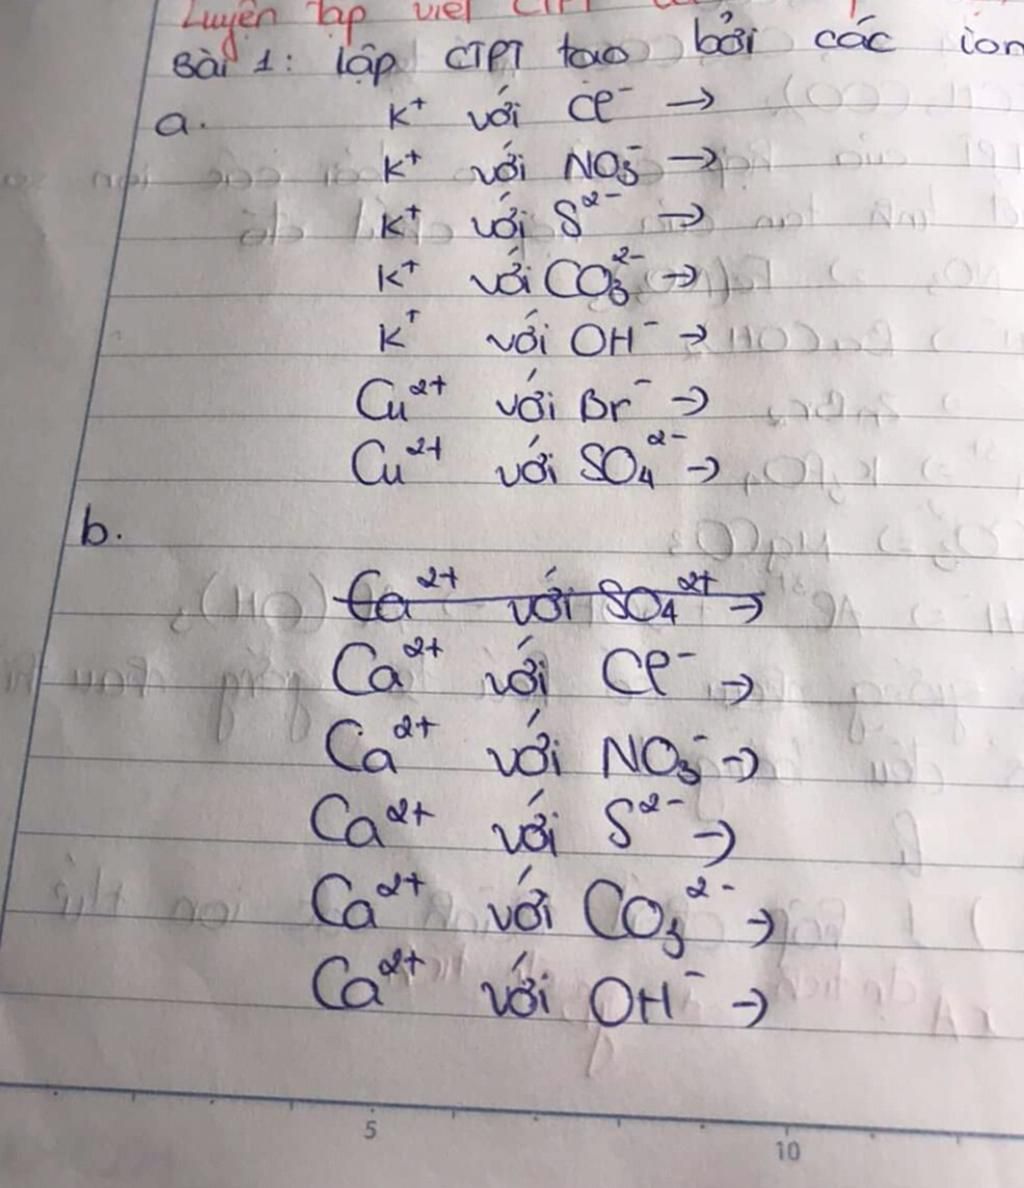 Luyện tập viết CTPT
Bài 1: lập CTPT tạo bởi các ion
a. K⁺ với Cl⁻ →
K⁺ với NO₃⁻ →
K⁺ với S²⁻ →
K⁺ với CO₃²⁻ →
K⁺ với OH⁻ →
Cu²⁺ với Br⁻ →
Cu²⁺ với SO₄²⁻ →
b.
Ca²⁺ với SO₄²⁺ →
Ca²⁺ với Cl⁻ →
Ca²⁺ với NO₃⁻ →
Ca²⁺ với S²⁻ →
Ca²⁺ với CO₃²⁻ →
Ca²⁺ với OH⁻ →
5 10